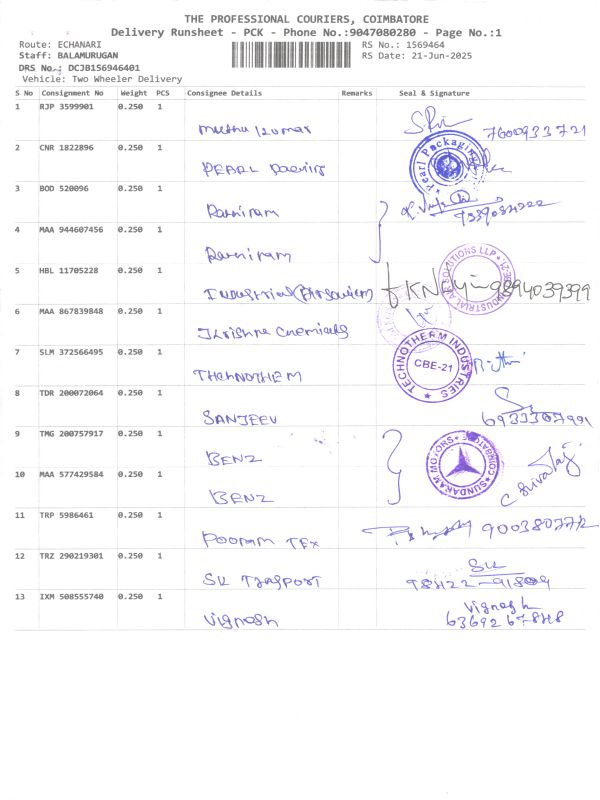 THE PROFESSIONAL COURIERS, COIMBATORE
Delivery Runsheet - PCK - Phone No.:9047080280 - Page No.:1
Route: ECHANARI
RS No.: 1569464
Staff: BALAMURUGAN
RS Date: 21-Jun-2025
DRS No.: DCJB156946401
Vehicle: Two Wheeler Delivery
S No Consignment No Weight PCS Consignee Details Remarks Seal & Signature
1 RJP 3599901 0.250 1
Muthu kumar 7600933721
2 CNR 1822896 0.250 1
PEARL Packing Pearl Packaging
3 BOD 520096 0.250 1
4 MAA 944607456 0.250 1
5 HBL 11705228 0.250 1
Industrial 9894039399
SOLUTIONS LLP
INDUSTRIAL
6 MAA 867839848 0.250 1
Krishna Chemicals
7 SLM 372566495 0.250 1
TECHNOTHERM INDUSTRIES
CBE-21
8 TDR 200072064 0.250 1
SANJEEV 6933307991
9 TMG 200757917 0.250 1
BENZ SUNDARAM MOTORS COIMBATORE
10 MAA 577429584 0.250 1
BENZ C Sivalaji
11 TRP 5986461 0.250 1
POORAM TEX
12 TRZ 290219301 0.250 1
SK
13 IXM 508555740 0.250 1
Vignesh Vignesh